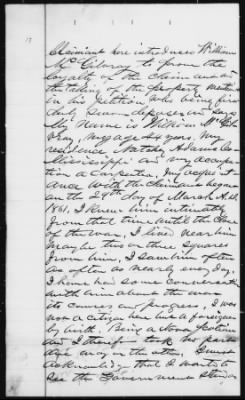 Claimant here introduces William
McGilvray to prove the
loyalty of the claimant and
the taking of the property mentioned
in his petition who being first
duly sworn deposes and says
My name is William McGil-
vray my age 49 years. My
residence Natchez Adams Co
Mississippi and my occupa-
tion a Carpenter, my acquaint
ance with the claimant began
on the 29th day of March A.D.
1861, I knew him intimately
from that time until the close
of the war. I lived near him
maybe two or three squares
from him, I saw him often
as often as nearly every day.
I have had some conversation
with him about the war
its causes and progress, I was
not a citizen here but a foreigner
by birth. Being a Nova Scotian
and I therefore took no part
one way or the other. I must
acknowledge that I wanted to
see the Government stand